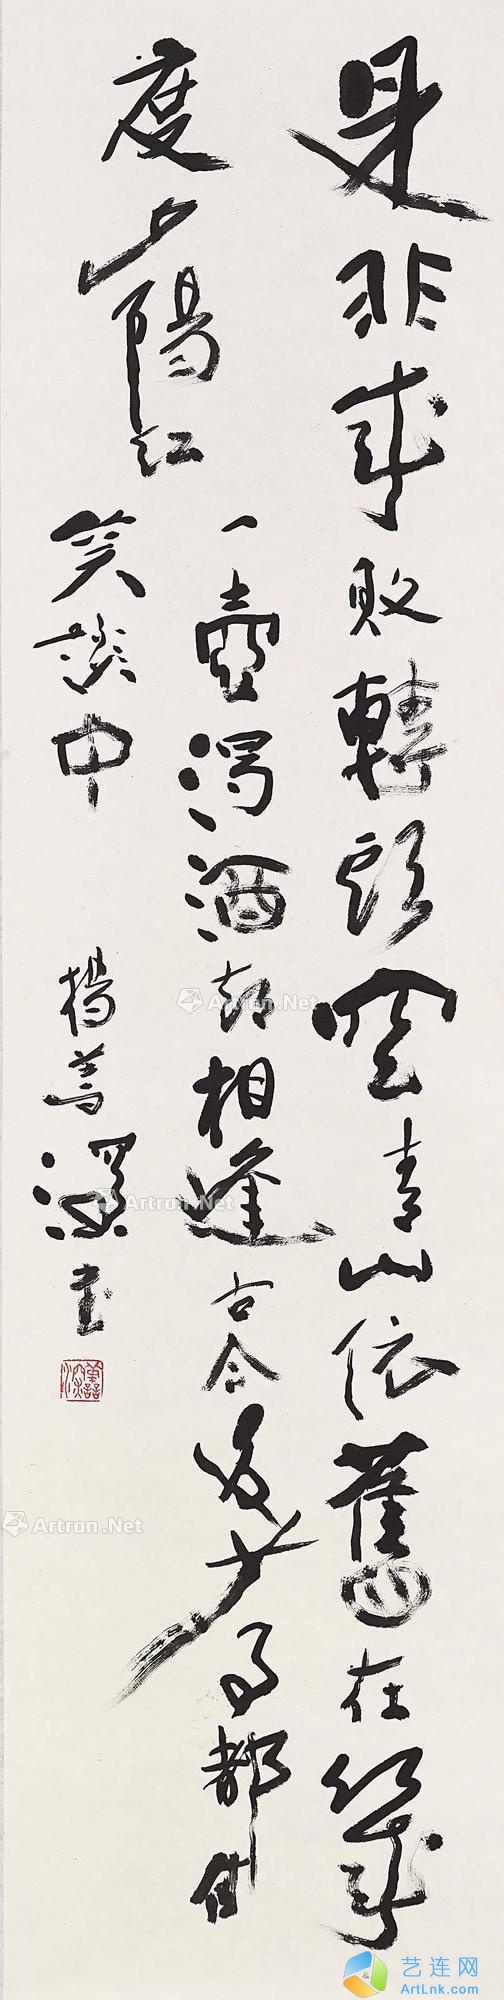 是非成敗轉頭空青山依舊在幾
度夕陽紅
一壺濁酒喜相逢古今多少事都付
笑談中
楊善深書
Artron.Net
Artron.Net
Artron.Net
艺连网
ArtLnk.com